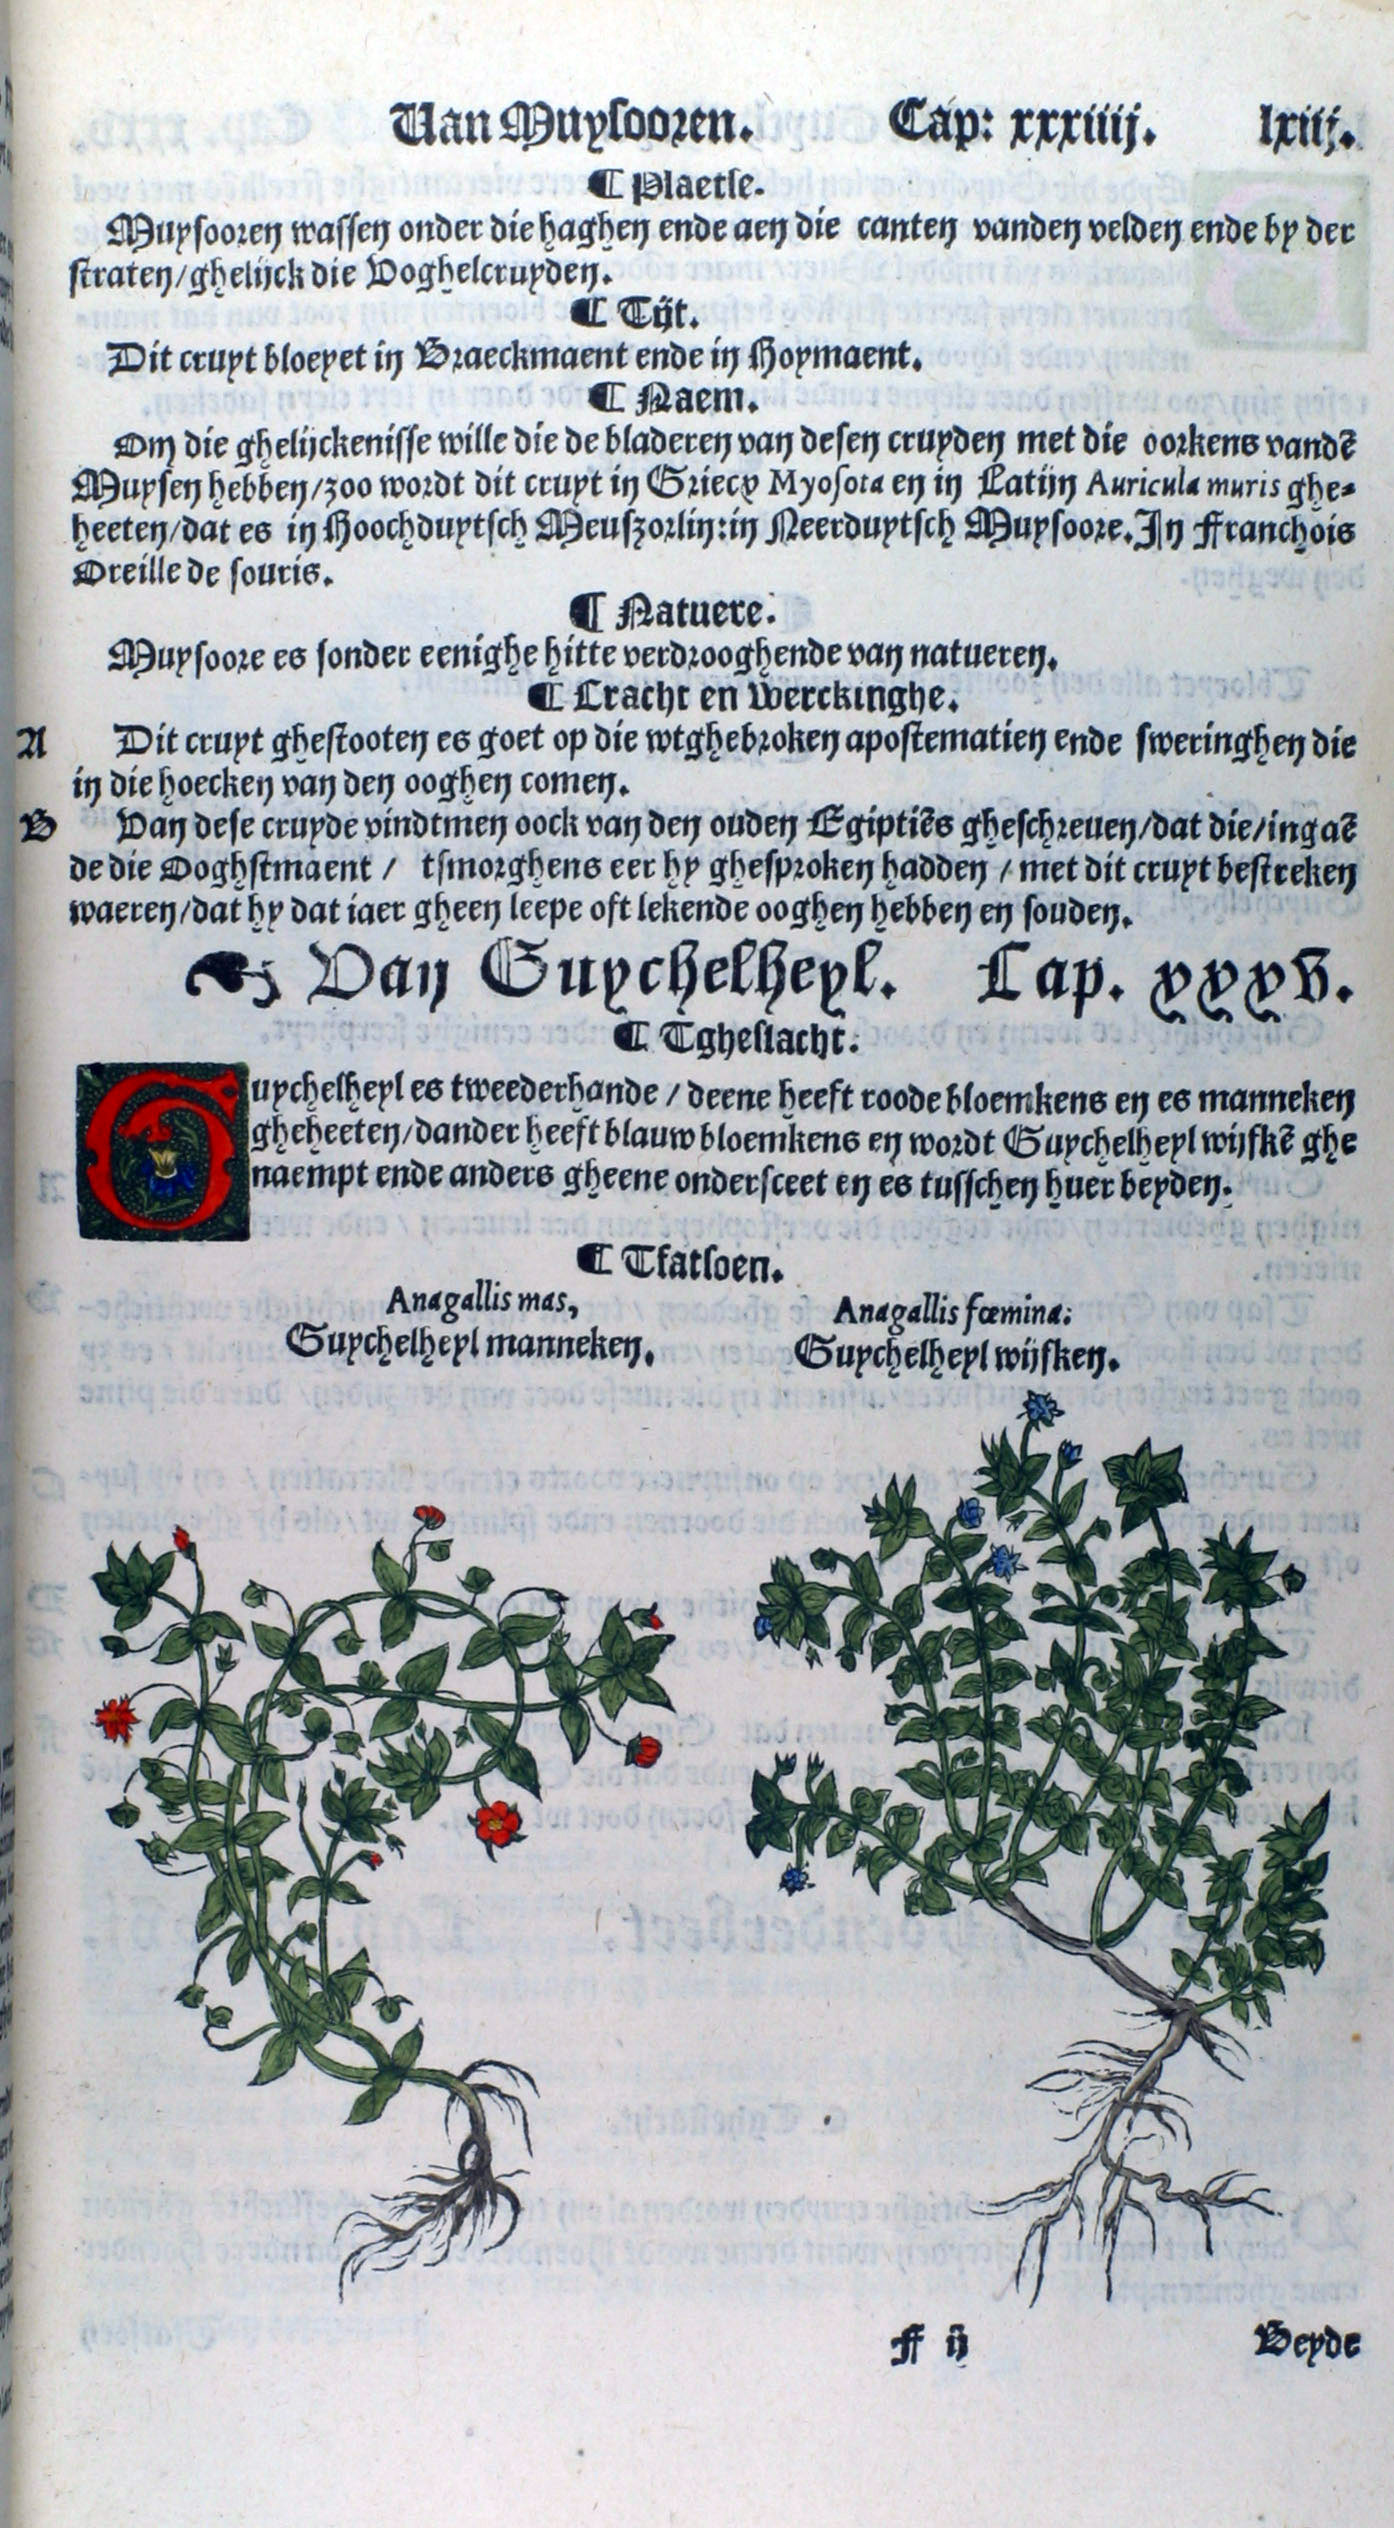 Van Muysooren. Cap: xxxiiij. lxiij.
¶ Plaetse.
Muysooren wassen onder die haghen ende aen die canten vanden velden ende by der
straten/ghelijck die Voghelcruyden.
¶ Tijt.
Dit cruyt bloeyet in Braeckmaent ende in Hoymaent.
¶ Naem.
Om die ghelijckenisse wille die de bladeren van desen cruyden met die oorkens vandē
Muysen hebben/zoo wordt dit cruyt in Griecx Myosota en in Latijn Auricula muris ghe-
heeten/dat es in Hoochduytsch Meuszorlin: in Neerduytsch Muysoore. In Franchois
Oreille de souris.
¶ Natuere.
Muysoore es sonder eenighe hitte verdrooghende van natueren.
¶ Cracht en Werckinghe.
A Dit cruyt ghestooten es goet op die wtghebroken apostematien ende sweringhen die
in die hoecken van den ooghen comen.
B Van dese cruyde vindtmen oock van den ouden Egiptiēs gheschreuen/dat die/ingaē
de die Ooghstmaent / tsmorghens eer hy ghesproken hadden / met dit cruyt bestreken
waeren/dat hy dat iaer gheen leepe oft lekende ooghen hebben en souden.
Van Guychelheyl. Cap. xxxv.
¶ Tgheslacht.
Guychelheyl es tweederhande / deene heeft roode bloemkens en es manneken
gheheeten/dander heeft blauw bloemkens en wordt Guychelheyl wijfkē ghe
naempt ende anders gheene ondersceet en es tusschen huer beyden.
¶ Tfatsoen.
Anagallis mas,
Guychelheyl manneken.
Anagallis fœmina:
Guychelheyl wijfken.
ff ij Beyde